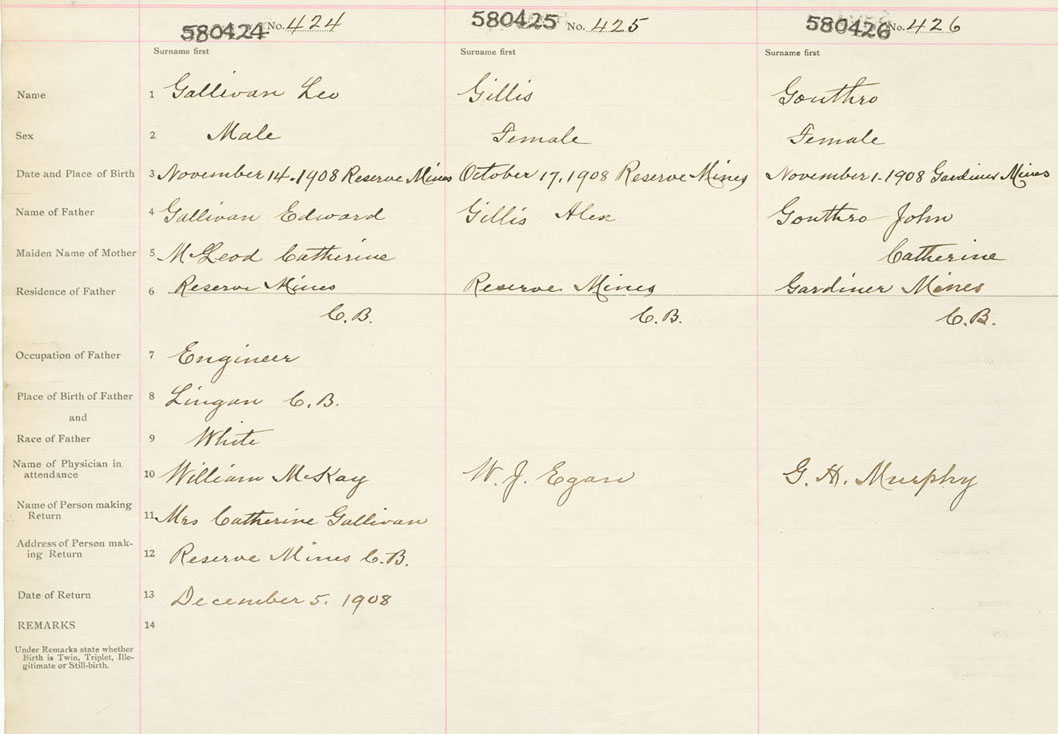 580424 No. 424 580425 No. 425 580426 No. 426
Surname first Surname first Surname first
Name 1 Gallivan Leo Gillis Gouthro
Sex 2 Male Female Female
Date and Place of Birth 3 November 14. 1908 Reserve Mines October 17. 1908 Reserve Mines November 1. 1908 Gardiner Mines
Name of Father 4 Gallivan Edward Gillis Alex Gouthro John
Maiden Name of Mother 5 McLeod Catherine Catherine
Residence of Father 6 Reserve Mines Reserve Mines Gardiner Mines
C.B. C.B. C.B.
Occupation of Father 7 Engineer
Place of Birth of Father 8 Lingan C.B.
and
Race of Father 9 White
Name of Physician in
attendance 10 William McKay W. J. Egan G. H. Murphy
Name of Person making
Return 11 Mrs Catherine Gallivan
Address of Person mak-
ing Return 12 Reserve Mines C.B.
Date of Return 13 December 5. 1908
REMARKS 14
Under Remarks state whether
Birth is Twin, Triplet, Ille-
gitimate or Still-birth.